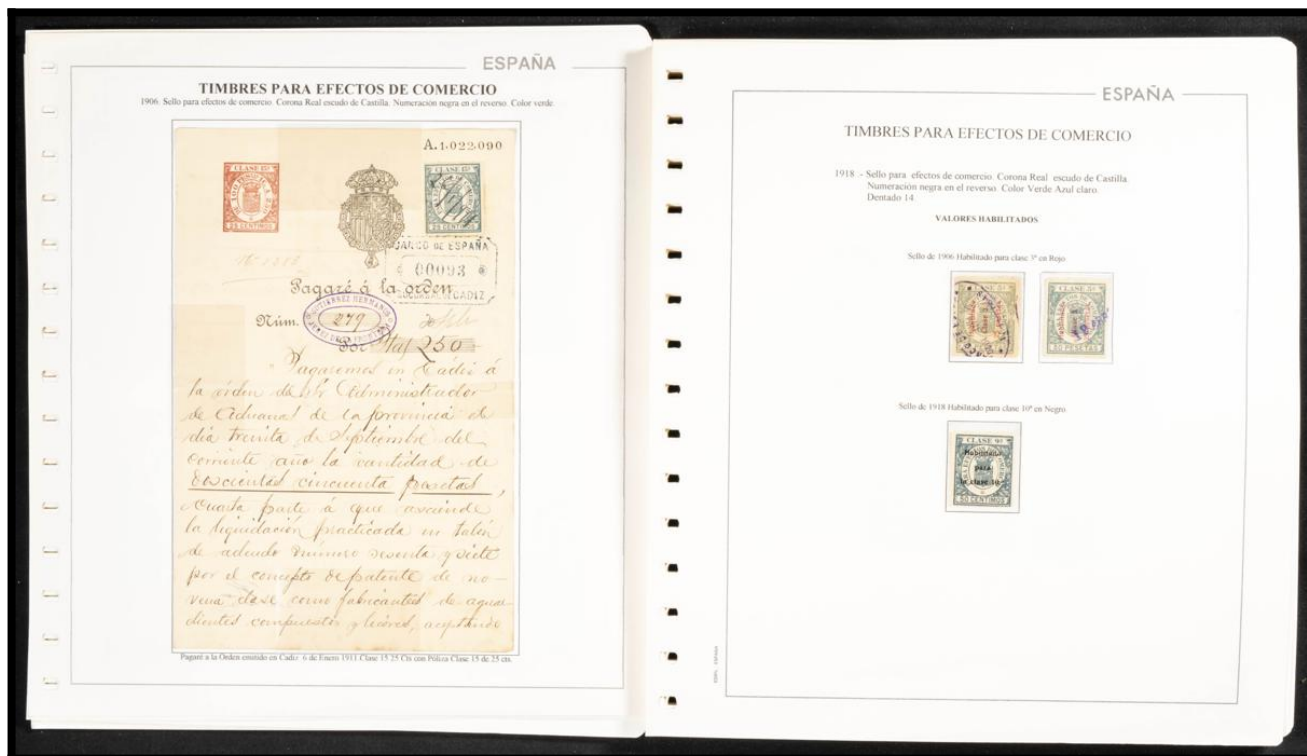 ESPAÑA
TIMBRES PARA EFECTOS DE COMERCIO
1906. Sello para efectos de comercio. Corona Real escudo de Castilla. Numeración negra en el reverso. Color verde.
A.1.022.090
CLASE 15ª
25 CENTIMOS
CLASE 15ª
25 CENTIMOS
BANCO DE ESPAÑA
00093
SUCURSAL DE CADIZ
Pagaré á la orden
Núm. 279
GUTIERREZ HERMANOS
Por Ptas 250
Pagaremos en Cádiz á
la orden del Sr Administrador
de Aduanas de la provincia el
dia treinta de Septiembre del
corriente año la cantidad de
Doscientas cincuenta pesetas,
cuarta parte á que asciende
la liquidación practicada en talón
de adeudo número sesenta y siete
por el concepto de patente de no-
vena clase como fabricantes de aguar
dientes compuestos y licores, aceptando
Pagaré a la Orden emitido en Cadiz 6 de Enero 1911 Clase 15 25 Cts con Póliza Clase 15 de 25 cts.
ESPAÑA
TIMBRES PARA EFECTOS DE COMERCIO
1918 .- Sello para efectos de comercio. Corona Real escudo de Castilla.
Numeración negra en el reverso. Color Verde Azul claro.
Dentado 14
VALORES HABILITADOS
Sello de 1906 Habilitado para clase 3ª en Rojo.
CLASE 5ª
CLASE 5ª
50 PESETAS
Sello de 1918 Habilitado para clase 10ª en Negro.
CLASE 9ª
Habilitado
para
la clase 10ª
50 CENTIMOS